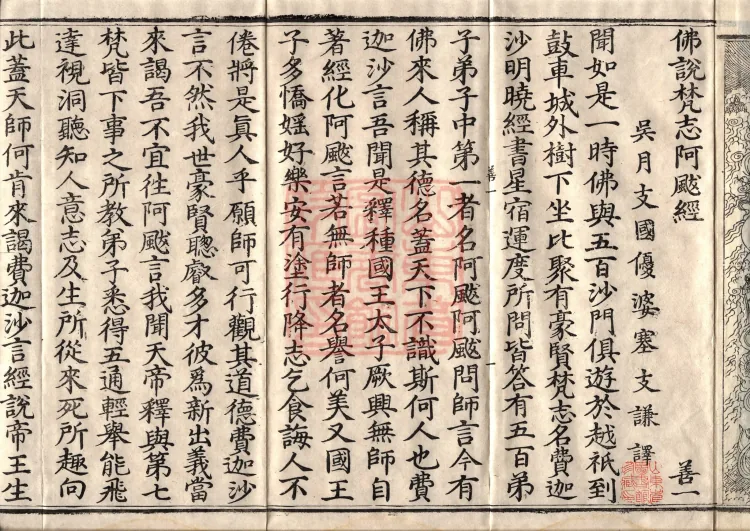 佛說梵志阿颰經
善一
吳月支國優婆塞支謙譯
聞如是一時佛與五百沙門俱遊於越祇到
鼓車城外樹下坐比聚有豪賢梵志名費迦
沙明曉經書星宿運度所問皆答有五百弟
子弟子中第一者名阿颰阿颰問師言今有
佛來人稱其德名蓋天下不識斯何人也費
迦沙言吾聞是釋種國王太子厥興無師自
著經化阿颰言若無師者名譽何美又國王
子多憍婬好樂安有塗行降志乞食誨人不
倦將是真人乎願師可行觀其道德費迦沙
言不然我世豪賢聰睿多才彼為新出義當
來謁吾不宜往阿颰言我聞天帝釋與第七
梵皆下事之所教弟子悉得五通輕舉能飛
達視洞聽知人意志及生所從來死所趣向
此蓋天師何肯來謁費迦沙言經說帝王生
善一